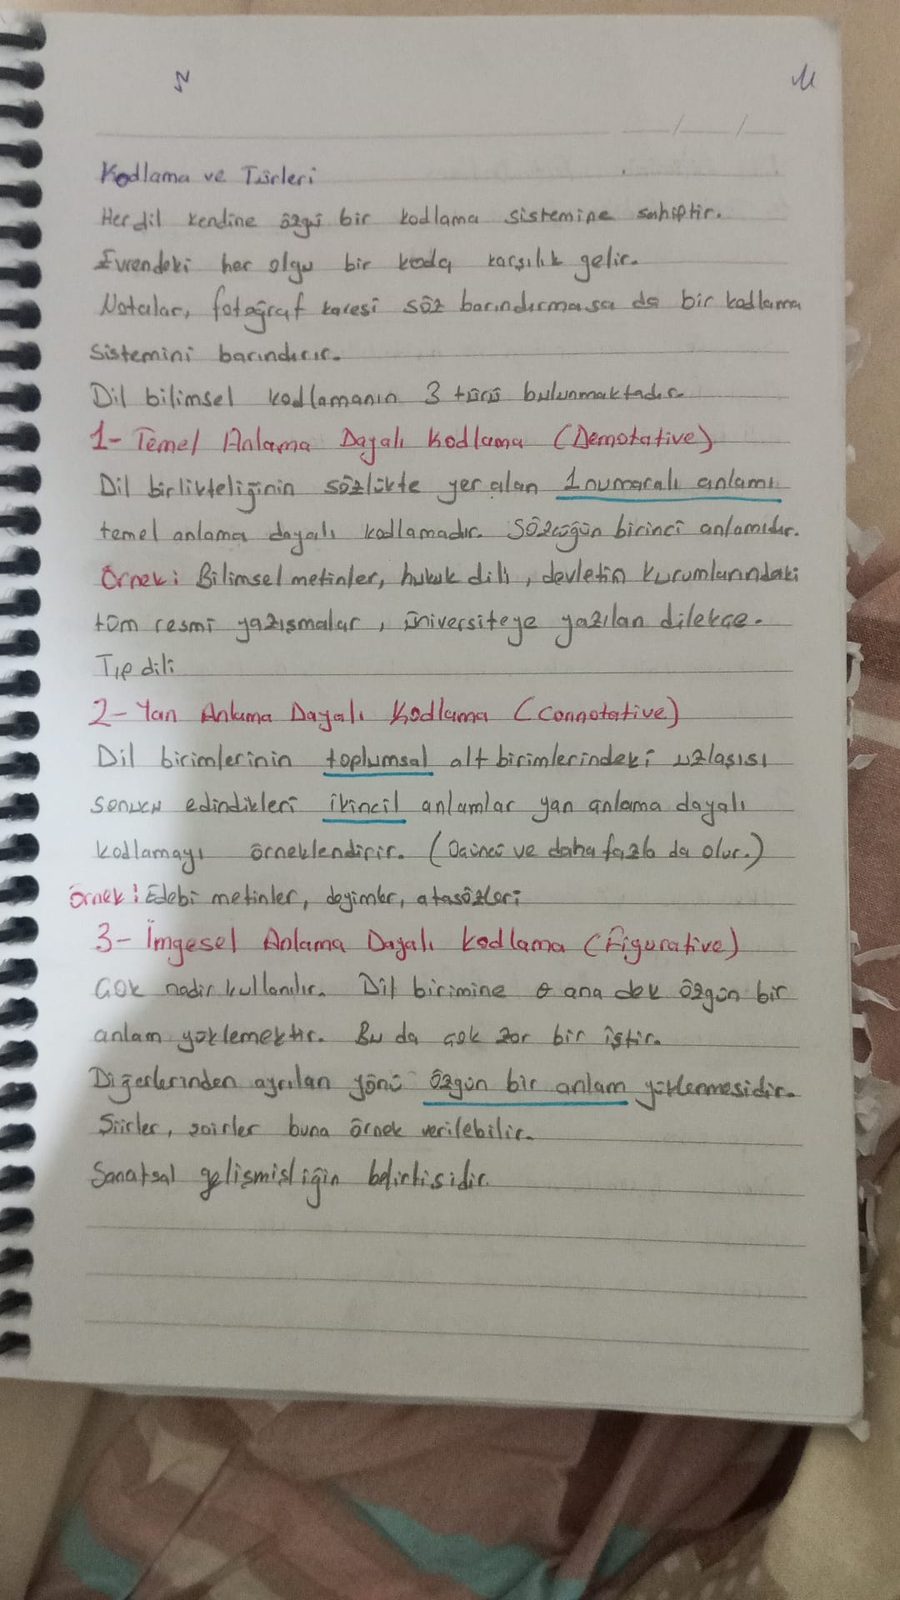 Kodlama ve Türleri
Her dil kendine özgü bir kodlama sistemine sahiptir.
Evrendeki her olgu bir koda karşılık gelir.
Notalar, fotoğraf karesi söz barındırmasa da bir kodlama
sistemini barındırır.
Dil bilimsel kodlamanın 3 türü bulunmaktadır.
1- Temel Anlama Dayalı Kodlama (Demotative)
Dil birlikteliğinin sözlükte yer alan 1 numaralı anlamı
temel anlama dayalı kodlamadır. Sözcüğün birinci anlamıdır.
Örnek: Bilimsel metinler, hukuk dili, devletin kurumlarındaki
tüm resmi yazışmalar, üniversiteye yazılan dilekçe.
Tıp dili
2- Yan Anlama Dayalı Kodlama (Connotative)
Dil birimlerinin toplumsal alt birimlerindeki uzlaşısı
sonucu edindikleri ikincil anlamlar yan anlama dayalı
kodlamayı örneklendirir. (Üçüncü ve daha fazla da olur.)
Örnek: Edebi metinler, deyimler, atasözleri
3- İmgesel Anlama Dayalı Kodlama (Figurative)
Çok nadir kullanılır. Dil birimine o ana dek özgün bir
anlam yüklemektir. Bu da çok zor bir iştir.
Diğerlerinden ayrılan yönü özgün bir anlam yüklenmesidir.
Şiirler, şairler buna örnek verilebilir.
Sanatsal gelişmişliğin belirtisidir.